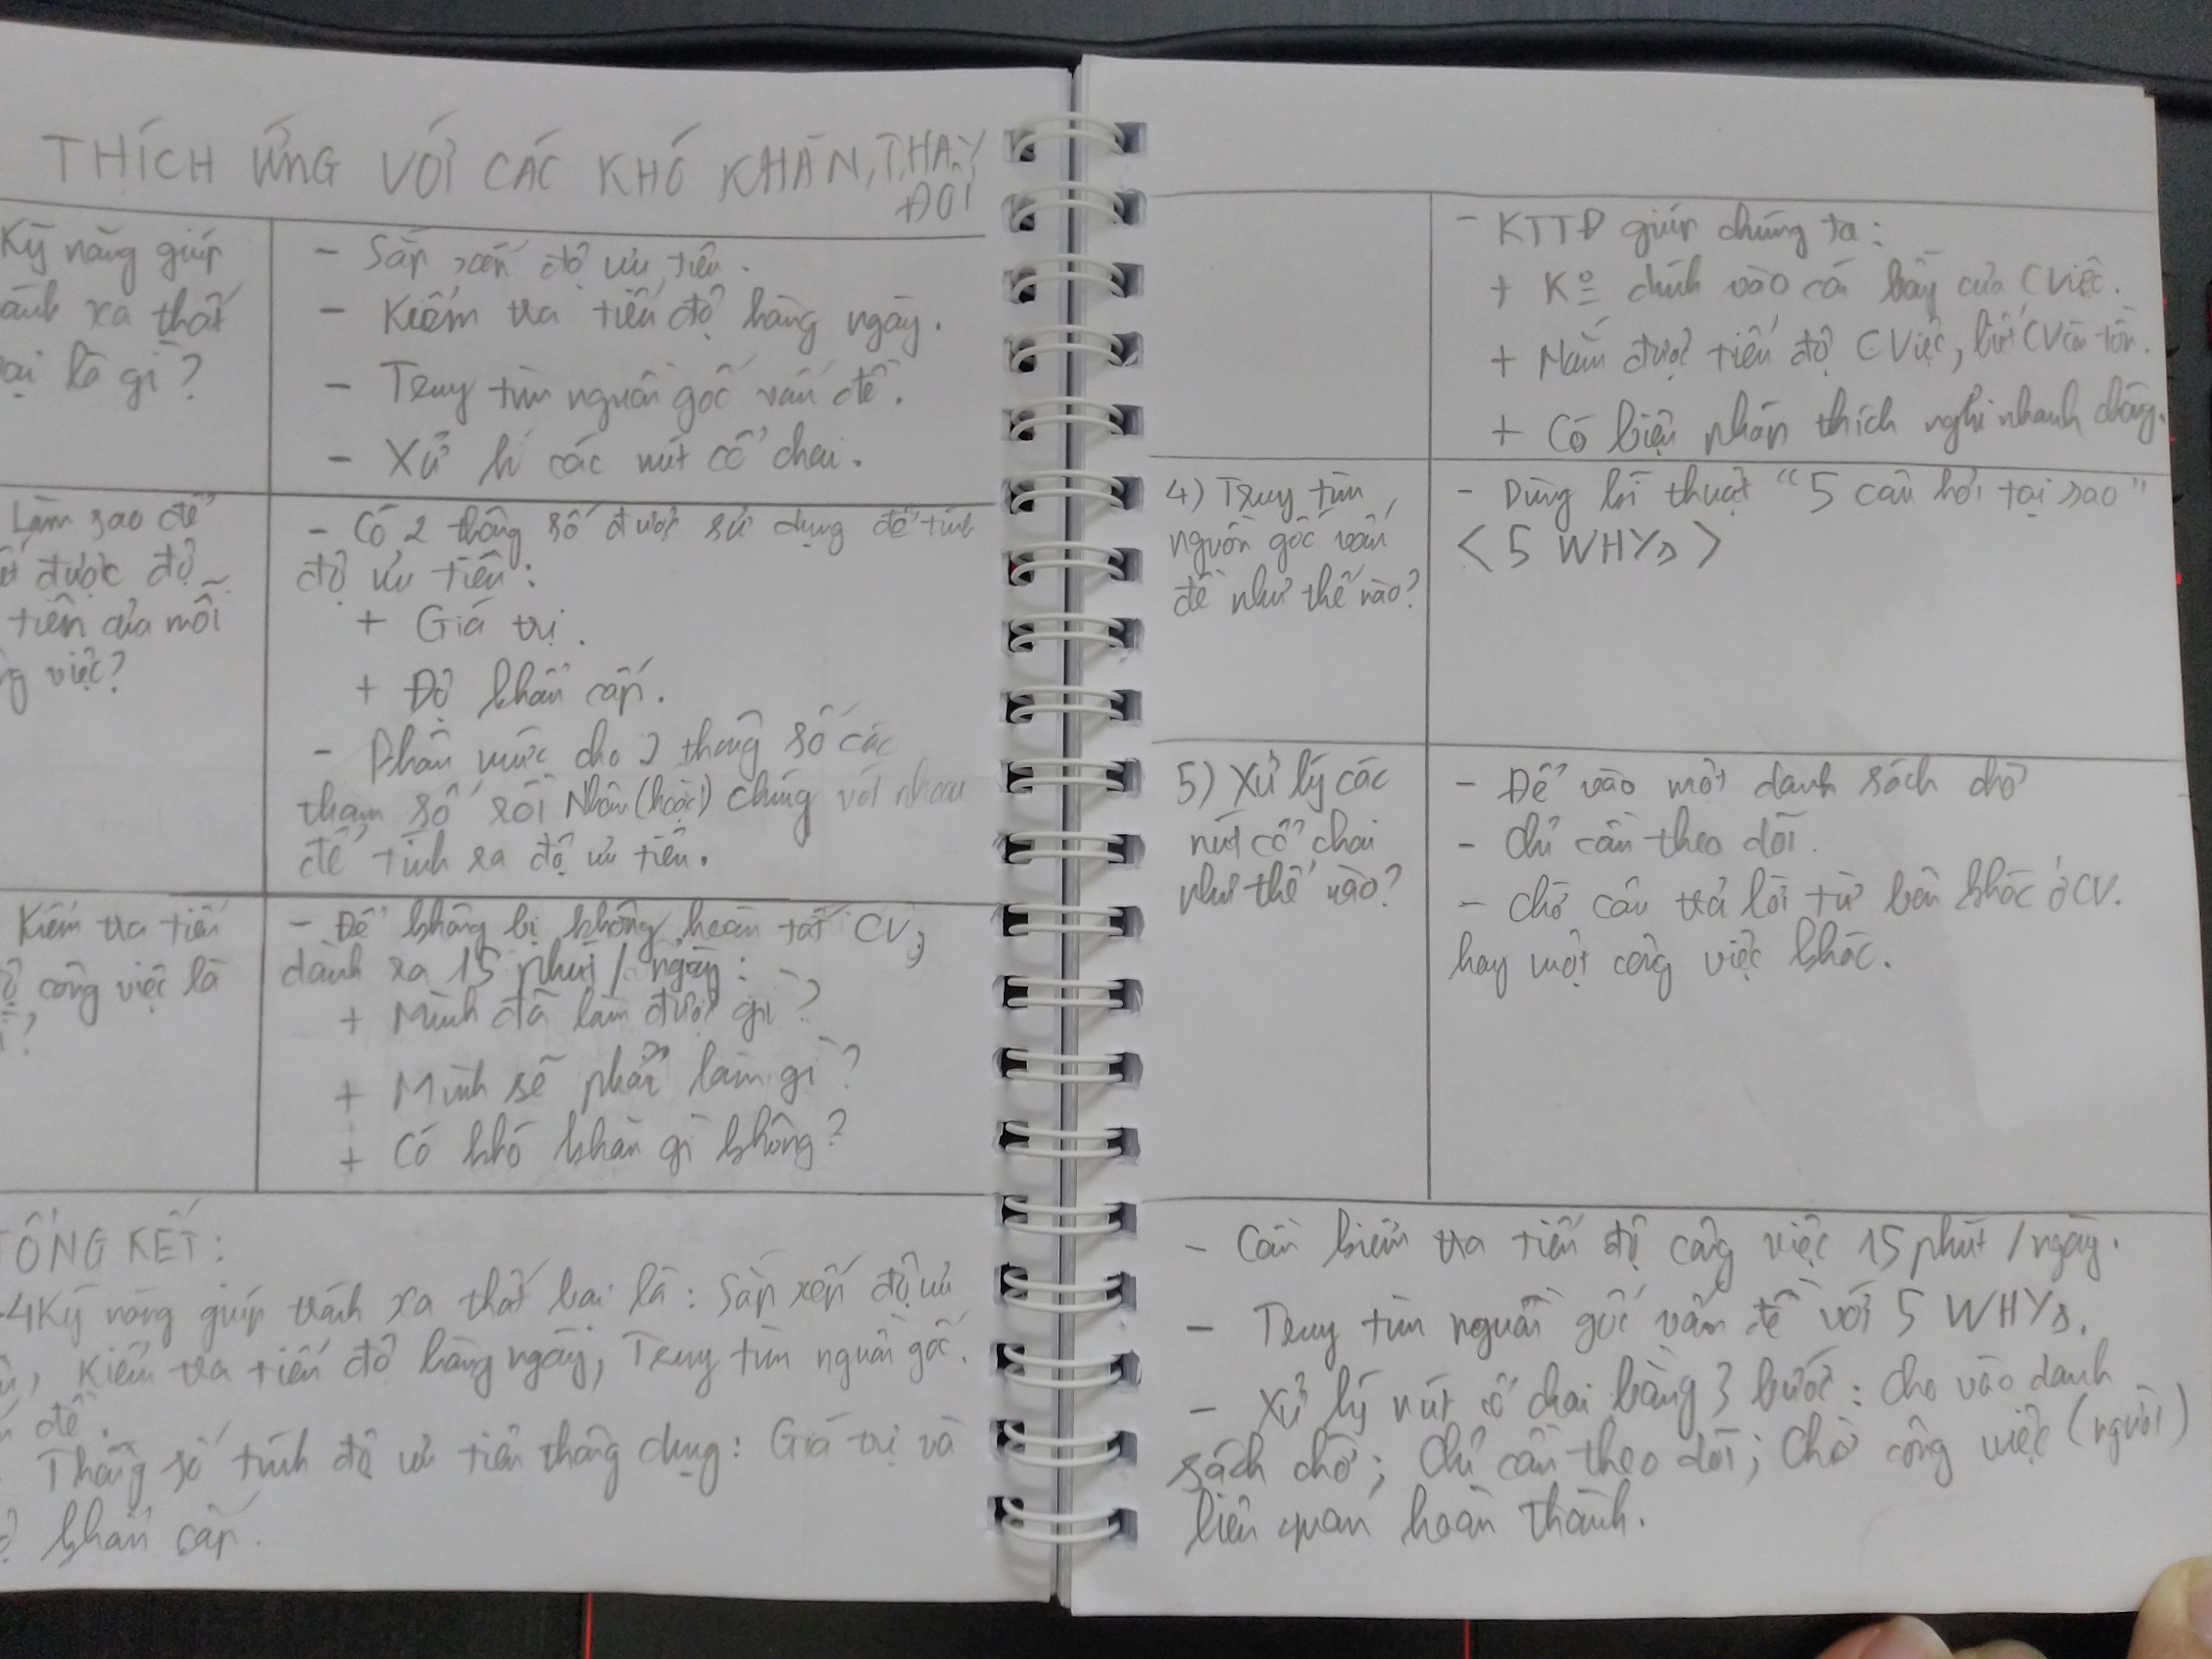 THÍCH ỨNG VỚI CÁC KHÓ KHĂN, THAY
ĐỔI
Kỹ năng giúp
ánh xa thất
ại là gì?
- Sắp xếp độ ưu tiên.
- Kiểm tra tiến độ hàng ngày.
- Truy tìm nguồn gốc vấn đề.
- Xử lí các nút cổ chai.
Làm sao để
ết được độ
tiên của mỗi
ng việc?
- Có 2 thông số được sử dụng để tính
độ ưu tiên:
+ Giá trị.
+ Độ khẩn cấp.
- Phân mức cho 2 thông số các
tham số rồi Nhân (hoặc) chúng với nhau
để tính ra độ ưu tiên.
Kiểm tra tiến
ộ công việc là
ì?
- Để không bị không hoàn tất CV,
dành ra 15 phút / ngày:
+ Mình đã làm được gì?
+ Mình sẽ phải làm gì?
+ Có khó khăn gì không?
TỔNG KẾT:
- 4 Kỹ năng giúp tránh xa thất bại là: Sắp xếp độ ưu
n, Kiểm tra tiến độ hàng ngày, Truy tìm nguồn gốc
đề.
Thông số tính độ ưu tiên thông dụng: Giá trị và
khẩn cấp.
- KTTĐ giúp chúng ta:
+ Kº dính vào cái bẫy của CViệc.
+ Nắm được tiến độ CViệc, biết CV còn tồn.
+ Có biện pháp thích nghi nhanh chóng.
4) Truy tìm
nguồn gốc vấn
đề như thế nào?
- Dùng kĩ thuật "5 câu hỏi tại sao"
<5 WHYs>
5) Xử lý các
nút cổ chai
như thế nào?
- Để vào một danh sách chờ
- Chỉ cần theo dõi.
- Chờ câu trả lời từ bên khác ở CV.
hay một công việc khác.
- Cần kiểm tra tiến độ công việc 15 phút / ngày.
- Truy tìm nguồn gốc vấn đề với 5 WHYs.
- Xử lý nút cổ chai bằng 3 bước: Cho vào danh
sách chờ; Chỉ cần theo dõi; Chờ công việc (người)
liên quan hoàn thành.